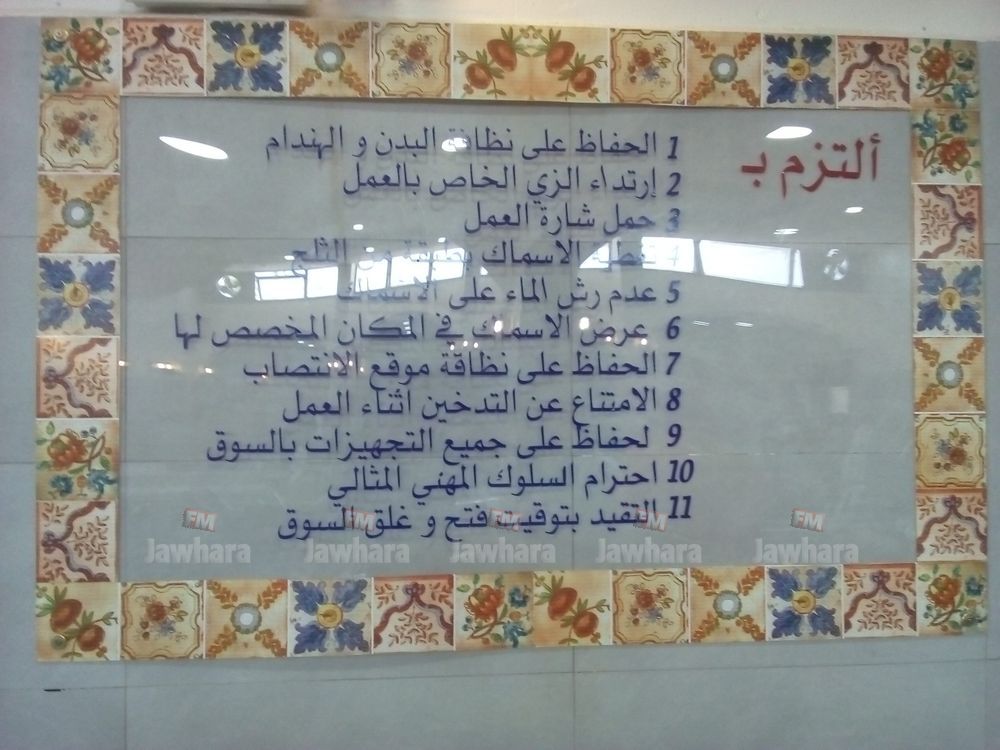 ألتزم بـ
1 الحفاظ على نظافة البدن و الهندام
2 إرتداء الزي الخاص بالعمل
3 حمل شارة العمل
4 تغطية الاسماك بطبقة من الثلج
5 عدم رش الماء على الاسماك
6 عرض الاسماك في المكان المخصص لها
7 الحفاظ على نظاقة موقع الانتصاب
8 الامتناع عن التدخين اثناء العمل
9 لحفاظ على جميع التجهيزات بالسوق
10 احترام السلوك المهني المثالي
11 التقيد بتوقيت فتح و غلق السوق
FM FM FM FM FM
Jawhara Jawhara Jawhara Jawhara Jawhara